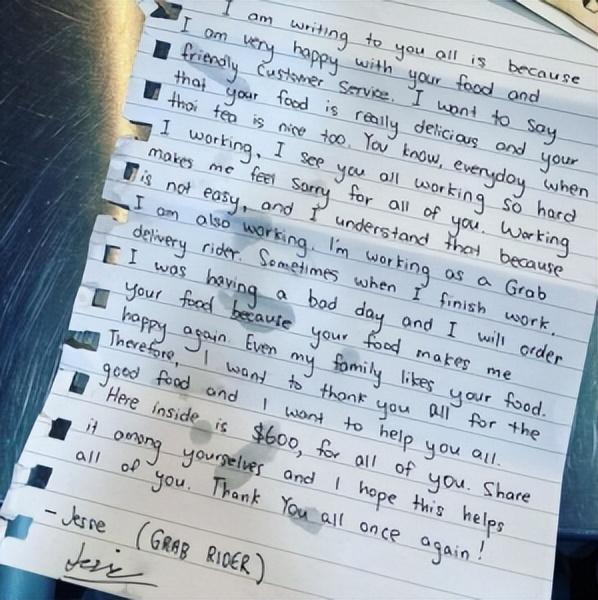 I am writing to you all is because
I am very happy with your food and
friendly customer service. I want to say
that your food is really delicious and your
thai tea is nice too. You know, everyday when
I working, I see you all working so hard
makes me feel sorry for all of you. Working
is not easy, and I understand that because
I am also working. I'm working as a Grab
delivery rider. Sometimes when I finish work.
I was having a bad day and I will order
your food because your food makes me
happy again. Even my family likes your food.
Therefore, I want to thank you all for the
good food and I want to help you all.
Here inside is $600, for all of you. Share
it among yourselves and I hope this helps
all of you. Thank You all once again!
- Jesse (GRAB RIDER)